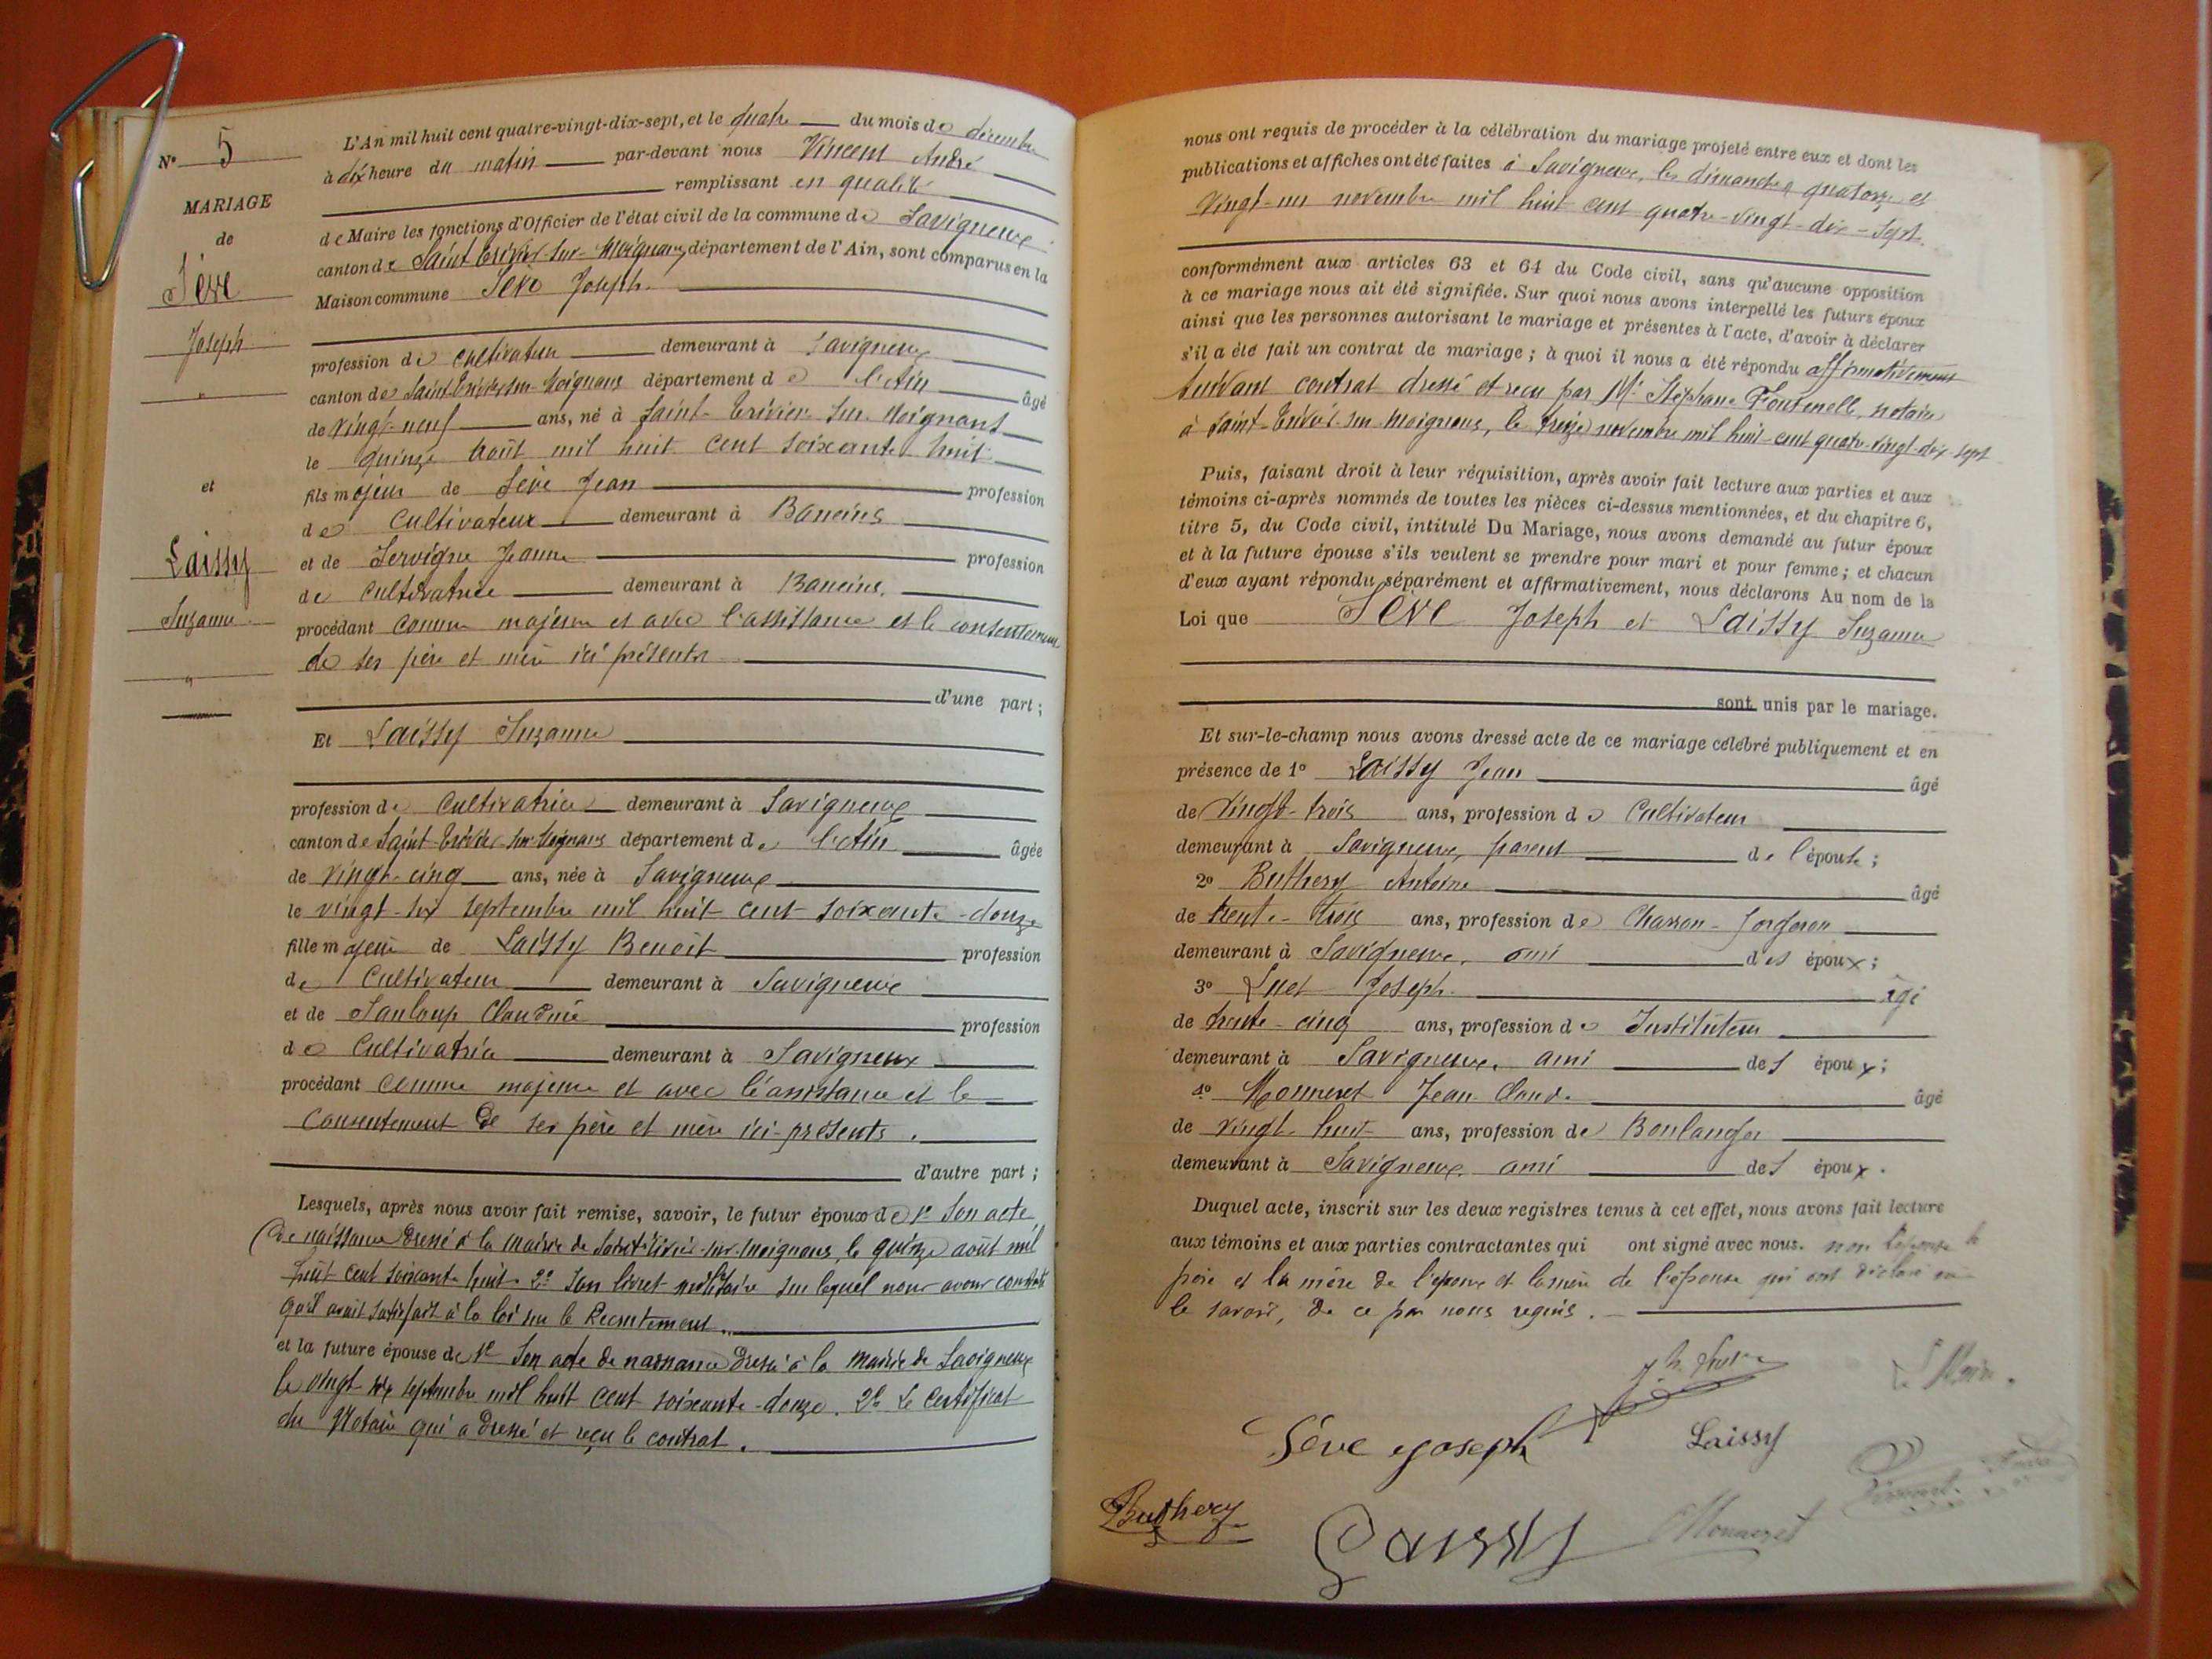 N° 5
MARIAGE
de
Sève
Joseph
"
et
Laissy
Suzanne
"
L'An mil huit cent quatre-vingt-dix-sept, et le quatre du mois de décembre
à dix heure du matin par-devant nous Vincent André
remplissant en qualité
de Maire les fonctions d'Officier de l'état civil de la commune de Savigneux
canton de Saint Trivier-sur-Moignans, département de l'Ain, sont comparus en la
Maison commune Sève Joseph.
profession de cultivateur demeurant à Savigneux
canton de Saint Trivier-sur-Moignans département de l'Ain âgé
de vingt-neuf ans, né à Saint-Trivier-sur-Moignans
le quinze août mil huit cent soixante huit
fils majeur de Sève Jean profession
de Cultivateur demeurant à Baneins
et de Servigne Jeanne profession
de cultivatrice demeurant à Baneins.
procédant comme majeur et avec l'assistance et le consentement
de ses père et mère ici présents
d'une part;
Et Laissy Suzanne
profession de Cultivatrice demeurant à Savigneux
canton de Saint-Trivier-sur-Moignans département de l'Ain âgée
de vingt-cinq ans, née à Savigneux
le vingt-six septembre mil huit cent soixante-douze
fille majeure de Laissy Benoît profession
de Cultivateur demeurant à Savigneux
et de Sanloup Claudine profession
de Cultivatrice demeurant à Savigneux
procédant comme majeure et avec l'assistance et le
consentement de ses père et mère ici-présents.
d'autre part;
Lesquels, après nous avoir fait remise, savoir, le futur époux de 1° Son acte
de naissance dressé à la Mairie de Saint-Trivier-sur-Moignans, le quinze août mil
huit cent soixante huit. 2° Son livret militaire sur lequel nous avons constaté
qu'il avait satisfait à la loi sur le Recrutement.
et la future épouse de 1° Son acte de naissance dressé à la Mairie de Savigneux
le vingt six septembre mil huit cent soixante-douze. 2° Le Certificat
du Notaire qui a dressé et reçu le contrat.
nous ont requis de procéder à la célébration du mariage projeté entre eux et dont les
publications et affiches ont été faites à Savigneux, les dimanches quatorze et
vingt-un novembre mil huit cent quatre-vingt-dix-sept.
conformément aux articles 63 et 64 du Code civil, sans qu'aucune opposition
à ce mariage nous ait été signifiée. Sur quoi nous avons interpellé les futurs époux
ainsi que les personnes autorisant le mariage et présentes à l'acte, d'avoir à déclarer
s'il a été fait un contrat de mariage; à quoi il nous a été répondu affirmativement
suivant contrat dressé et reçu par Me Stéphane Fontenelle, notaire
à Saint-Trivier-sur-Moignans, le treize novembre mil huit-cent quatre-vingt-dix-sept
Puis, faisant droit à leur réquisition, après avoir fait lecture aux parties et aux
témoins ci-après nommés de toutes les pièces ci-dessus mentionnées, et du chapitre 6,
titre 5, du Code civil, intitulé Du Mariage, nous avons demandé au futur époux
et à la future épouse s'ils veulent se prendre pour mari et pour femme; et chacun
d'eux ayant répondu séparément et affirmativement, nous déclarons Au nom de la
Loi que Sève Joseph et Laissy Suzanne
sont unis par le mariage.
Et sur-le-champ nous avons dressé acte de ce mariage célébré publiquement et en
présence de 1° Laissy Jean âgé
de vingt-trois ans, profession de Cultivateur
demeurant à Savigneux, parent de l'épouse;
2° Buthery Antoine âgé
de trente-trois ans, profession de Charron-forgeron
demeurant à Savigneux, ami des époux;
3° Luet Joseph. âgé
de trente-cinq ans, profession de Instituteur
demeurant à Savigneux, ami des époux;
4° Monneret Jean Claude âgé
de vingt-huit ans, profession de Boulanger
demeurant à Savigneux, ami des époux.
Duquel acte, inscrit sur les deux registres tenus à cet effet, nous avons fait lecture
aux témoins et aux parties contractantes qui ont signé avec nous. non l'épouse le
père et la mère de l'époux et la mère de l'épouse qui ont déclaré ne
le savoir, de ce par nous requis.
Le Maire.
Sève Joseph
Laissy
Buthery
Laissy
Monneret
Vincent André